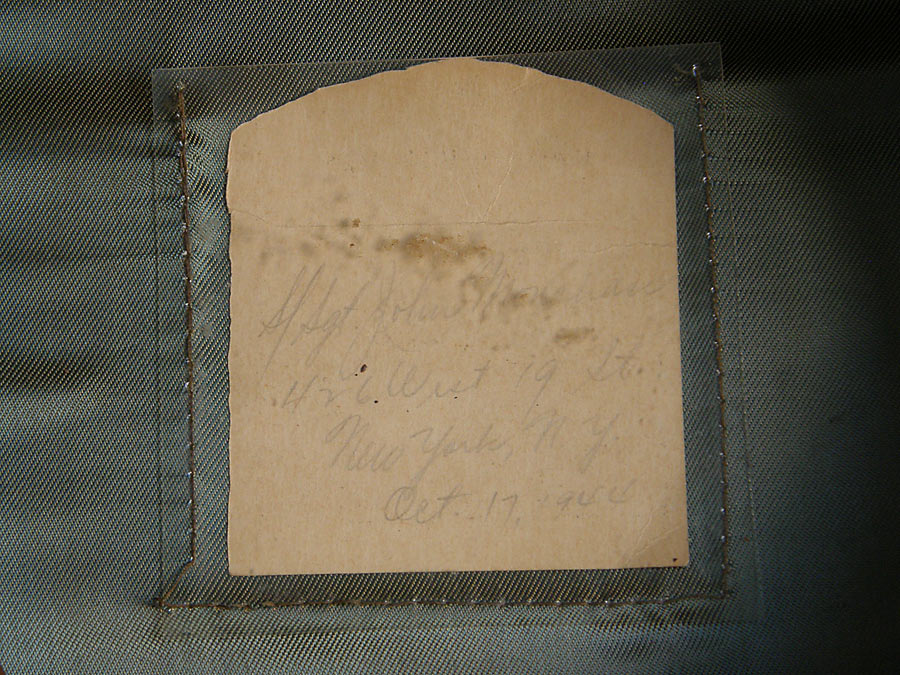 S/Sgt. John
426 West 19 St.
New York, N Y
Oct. 17, 1944